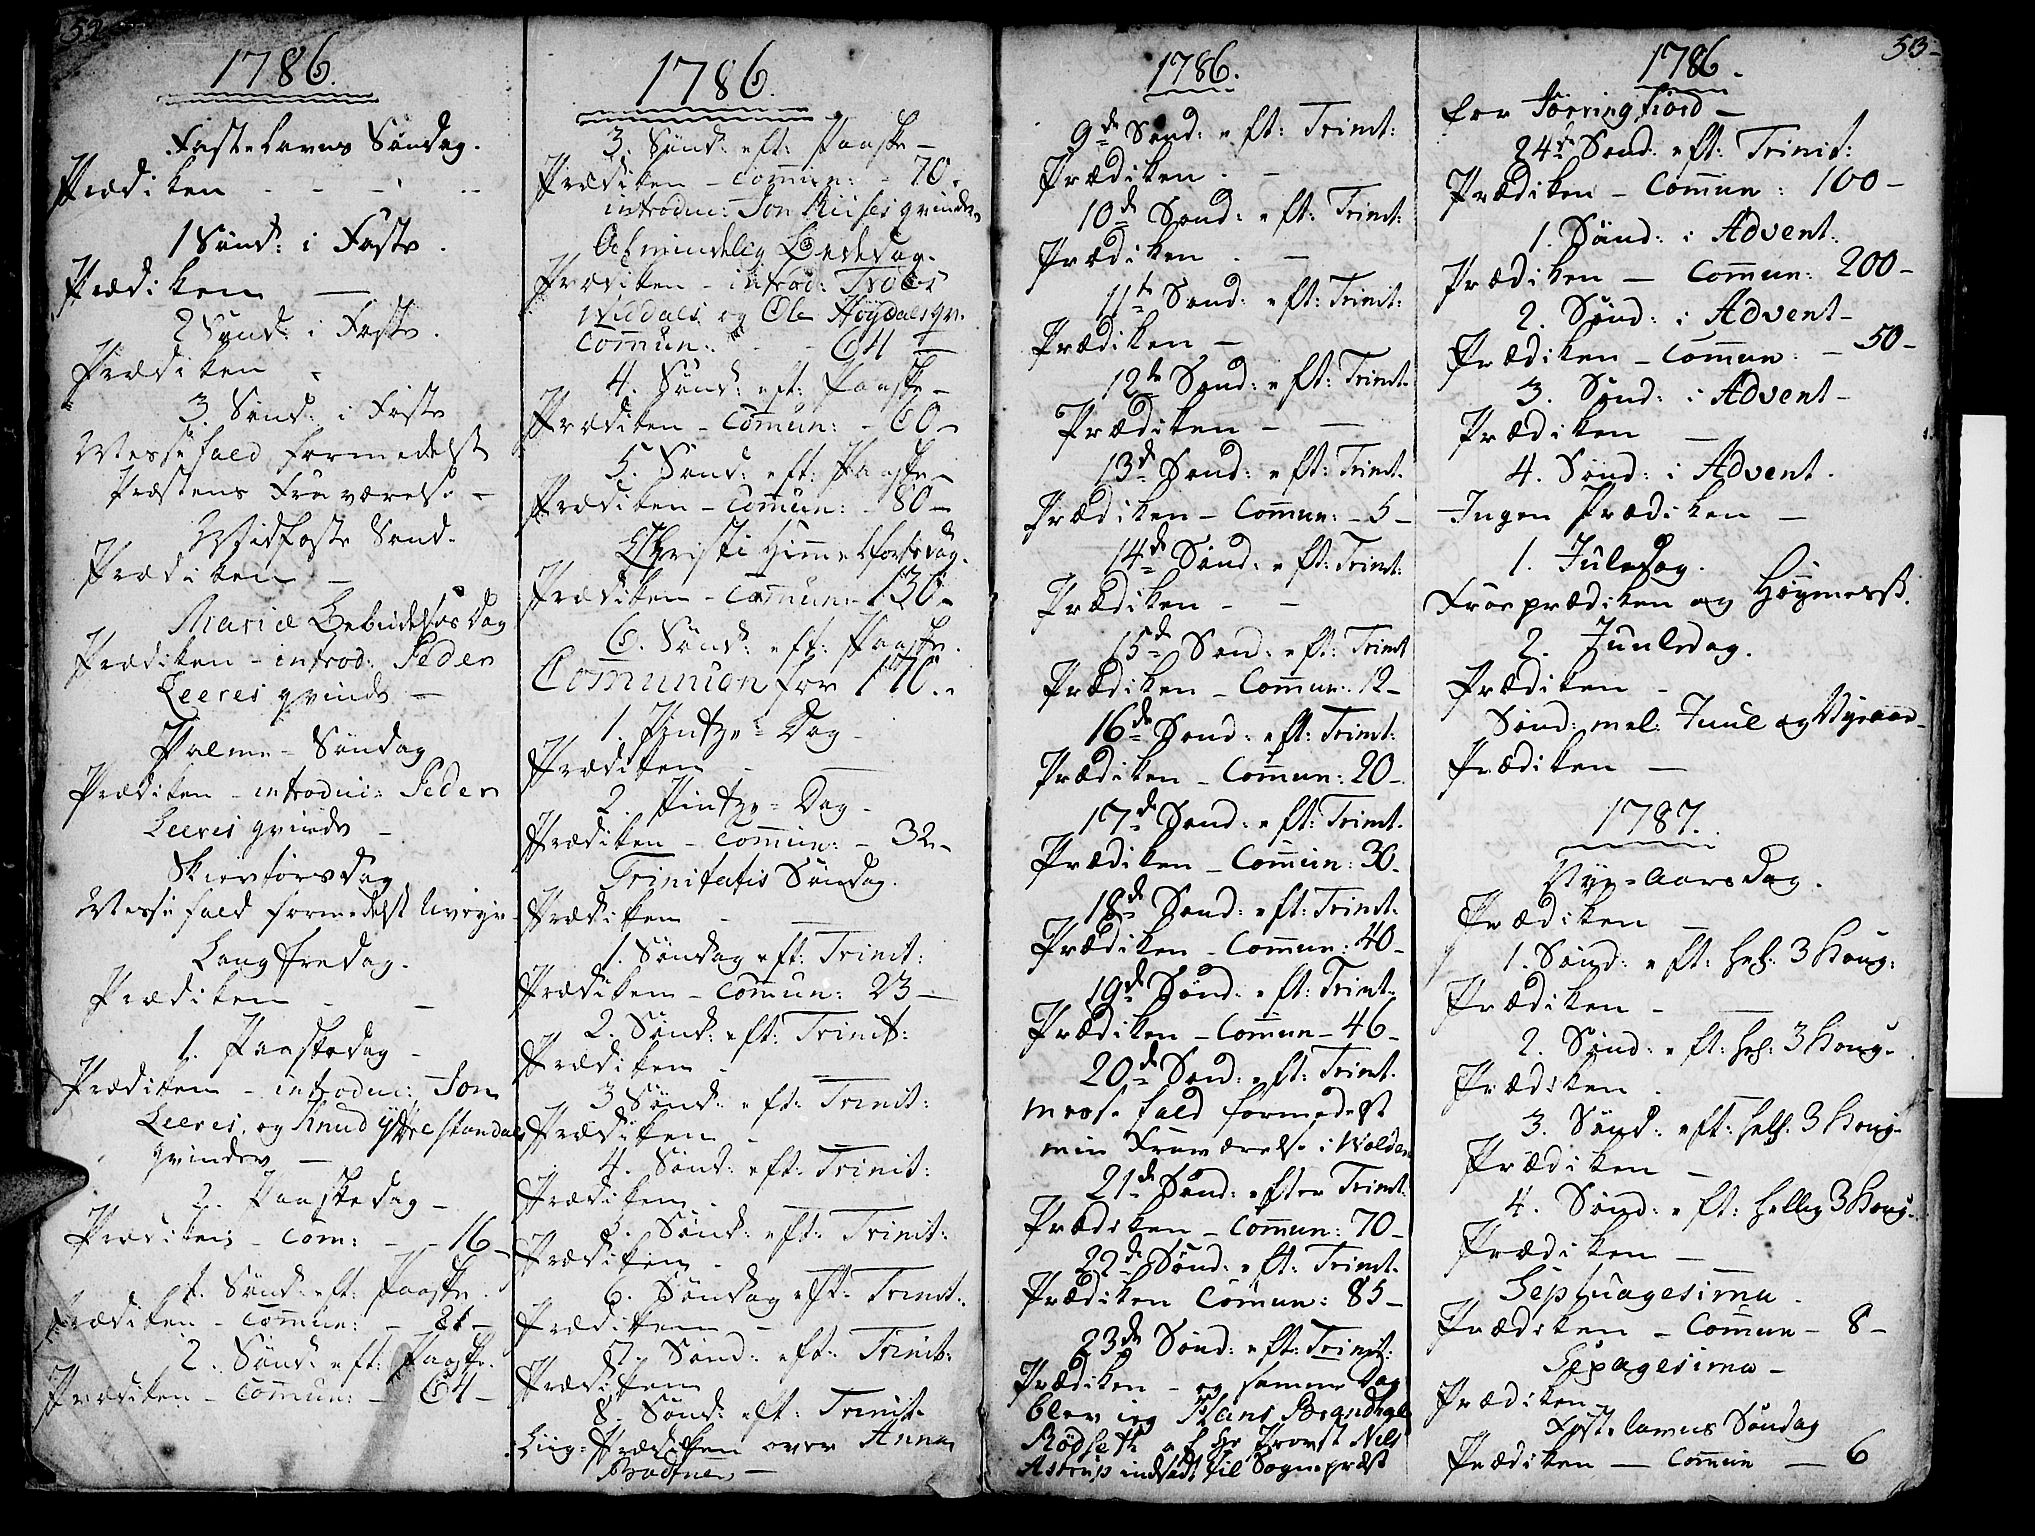 52
1786.
Fastelavns Søndag.
Prædiken - - - --
1 Sønd: i Faste.
Prædiken —
2 Sønd: i Faste.
Prædiken -
3. Sønd: i Faste
Messefald formedelst
Præstens Fraværelse -
Midfaste Sønd.
Prædiken -
Mariæ Bebudelses Dag
Prædiken - introd: Peder
Leeres qvinde -
Palme-Søndag
Prædiken - introduc: Peder
Leeres qvinde -
Skiertorsdag
Messefald formedelst
Langfredag.
Prædiken - -
1. Paaskedag -
Prædiken - introduc: Jon
Leeres, og Knud
qvinder —
2. Paaskedag -
Prædiken - Com: - - 16 -
1. Sønd: eft: Paaske.
Prædiken - Commun: - 21 -
2. Sønd: eft: Paaske.
Prædiken - Commun: - 64 -
1786.
3. Sønd: eft: Paaske -
Prædiken - Commun: - 70.
introduc: Jon Riises qvinde
Almindelig Bededag.
Prædiken - introd:
og Ole Høydals qv.
Commun: - - 64
4. Sønd: eft: Paaske -
Prædiken - Commun: - 60 -
5. Sønd: eft: Paaske -
Prædiken - Commun: - 80 -
Christi Himmelfartsdag.
Prædiken - Commun: - 130 -
6. Sønd: eft: Paaske.
Communion for 170.
1. Pintze-Dag -
Prædiken - —
2. Pintze-Dag -
Prædiken - Commun: - 32 -
Trinitatis Søndag.
Prædiken - —
1. Søndag eft: Trinit:
Prædiken - Commun: 23 —
2. Sønd: eft: Trinit:
Prædiken - —
3 Sønd: eft: Trinit:
Prædiken -
4. Sønd: eft: Trinit:
Prædiken - —
5. Sønd: eft: Trinit:
Prædiken -
6. Søndag eft: Trinit.
Prædiken -
7. Sønd: eft: Trinit:
Prædiken
8. Sønd: eft: Trinit.
Liig-Prædiken over Anna
—
1786.
9de Sønd: eft: Trinit:
Prædiken - —
10de Sønd: eft: Trinit:
Prædiken - —
11te Sønd: eft: Trinit:
Prædiken -
12te Sønd: eft: Trinit.
Prædiken - —
13de Sønd: eft: Trinit.
Prædiken - Commun: - 5 -
14de Sønd: eft: Trinit:
Prædiken - —
15de Sønd: eft: Trinit
Prædiken - Commun: 12 -
16de Sønd: eft: Trinit:
Prædiken - Commun: 20 -
17de Sønd: eft: Trinit.
Prædiken - Commun: 30 -
18de Sønd: eft: Trinit.
Prædiken - Commun: 40 -
19de Sønd: eft: Trinit.
Prædiken - Commun - 46 -
20de Sønd: eft: Trinit.
Messefald formedelst
min Fraværelse i Wolden
21de Sønd: efter Trinit.
Prædiken - Commun: 70 -
22de Sønd: eft: Trinit.
Prædiken Commun: 85 -
23de Sønd: eft: Trinit:
Prædiken - og samme Dag
blev ieg Hans
Rødseth af Hr Provst Nils
Astrup indsadt til Sognepræst
53 -
1786.
for Tørringfiord —
24de Sønd: eft: Trinit:
Prædiken - Commun: 100 -
1. Sønd: i Advent.
Prædiken — Commun: 200 -
2. Sønd: i Advent -
Prædiken - Commun: - 50 -
3. Sønd: i Advent -
Prædiken —
4. Sønd: i Advent.
Ingen Prædiken —
1. Juledag.
Froeprædiken og Høymesse.
2. Juuledag.
Prædiken -
Sønd: mel: Juul og Nyeaar -
Prædiken —
1787.
Nye-Aarsdag.
Prædiken —
1. Sønd: eft: hel: 3 Kong:
Prædiken - —
2. Sønd: eft: hel: 3 Kong.
Prædiken. —
3. Sønd: eft: hell: 3 Kong.
Prædiken —
4. Sønd: eft: hellig 3 Kong.
Prædiken - —
Septuagesima -
Prædiken - Commun - 8 -
Sexagesima -
Prædiken -
Fastelavns Søndag
Prædiken — Commun — 6